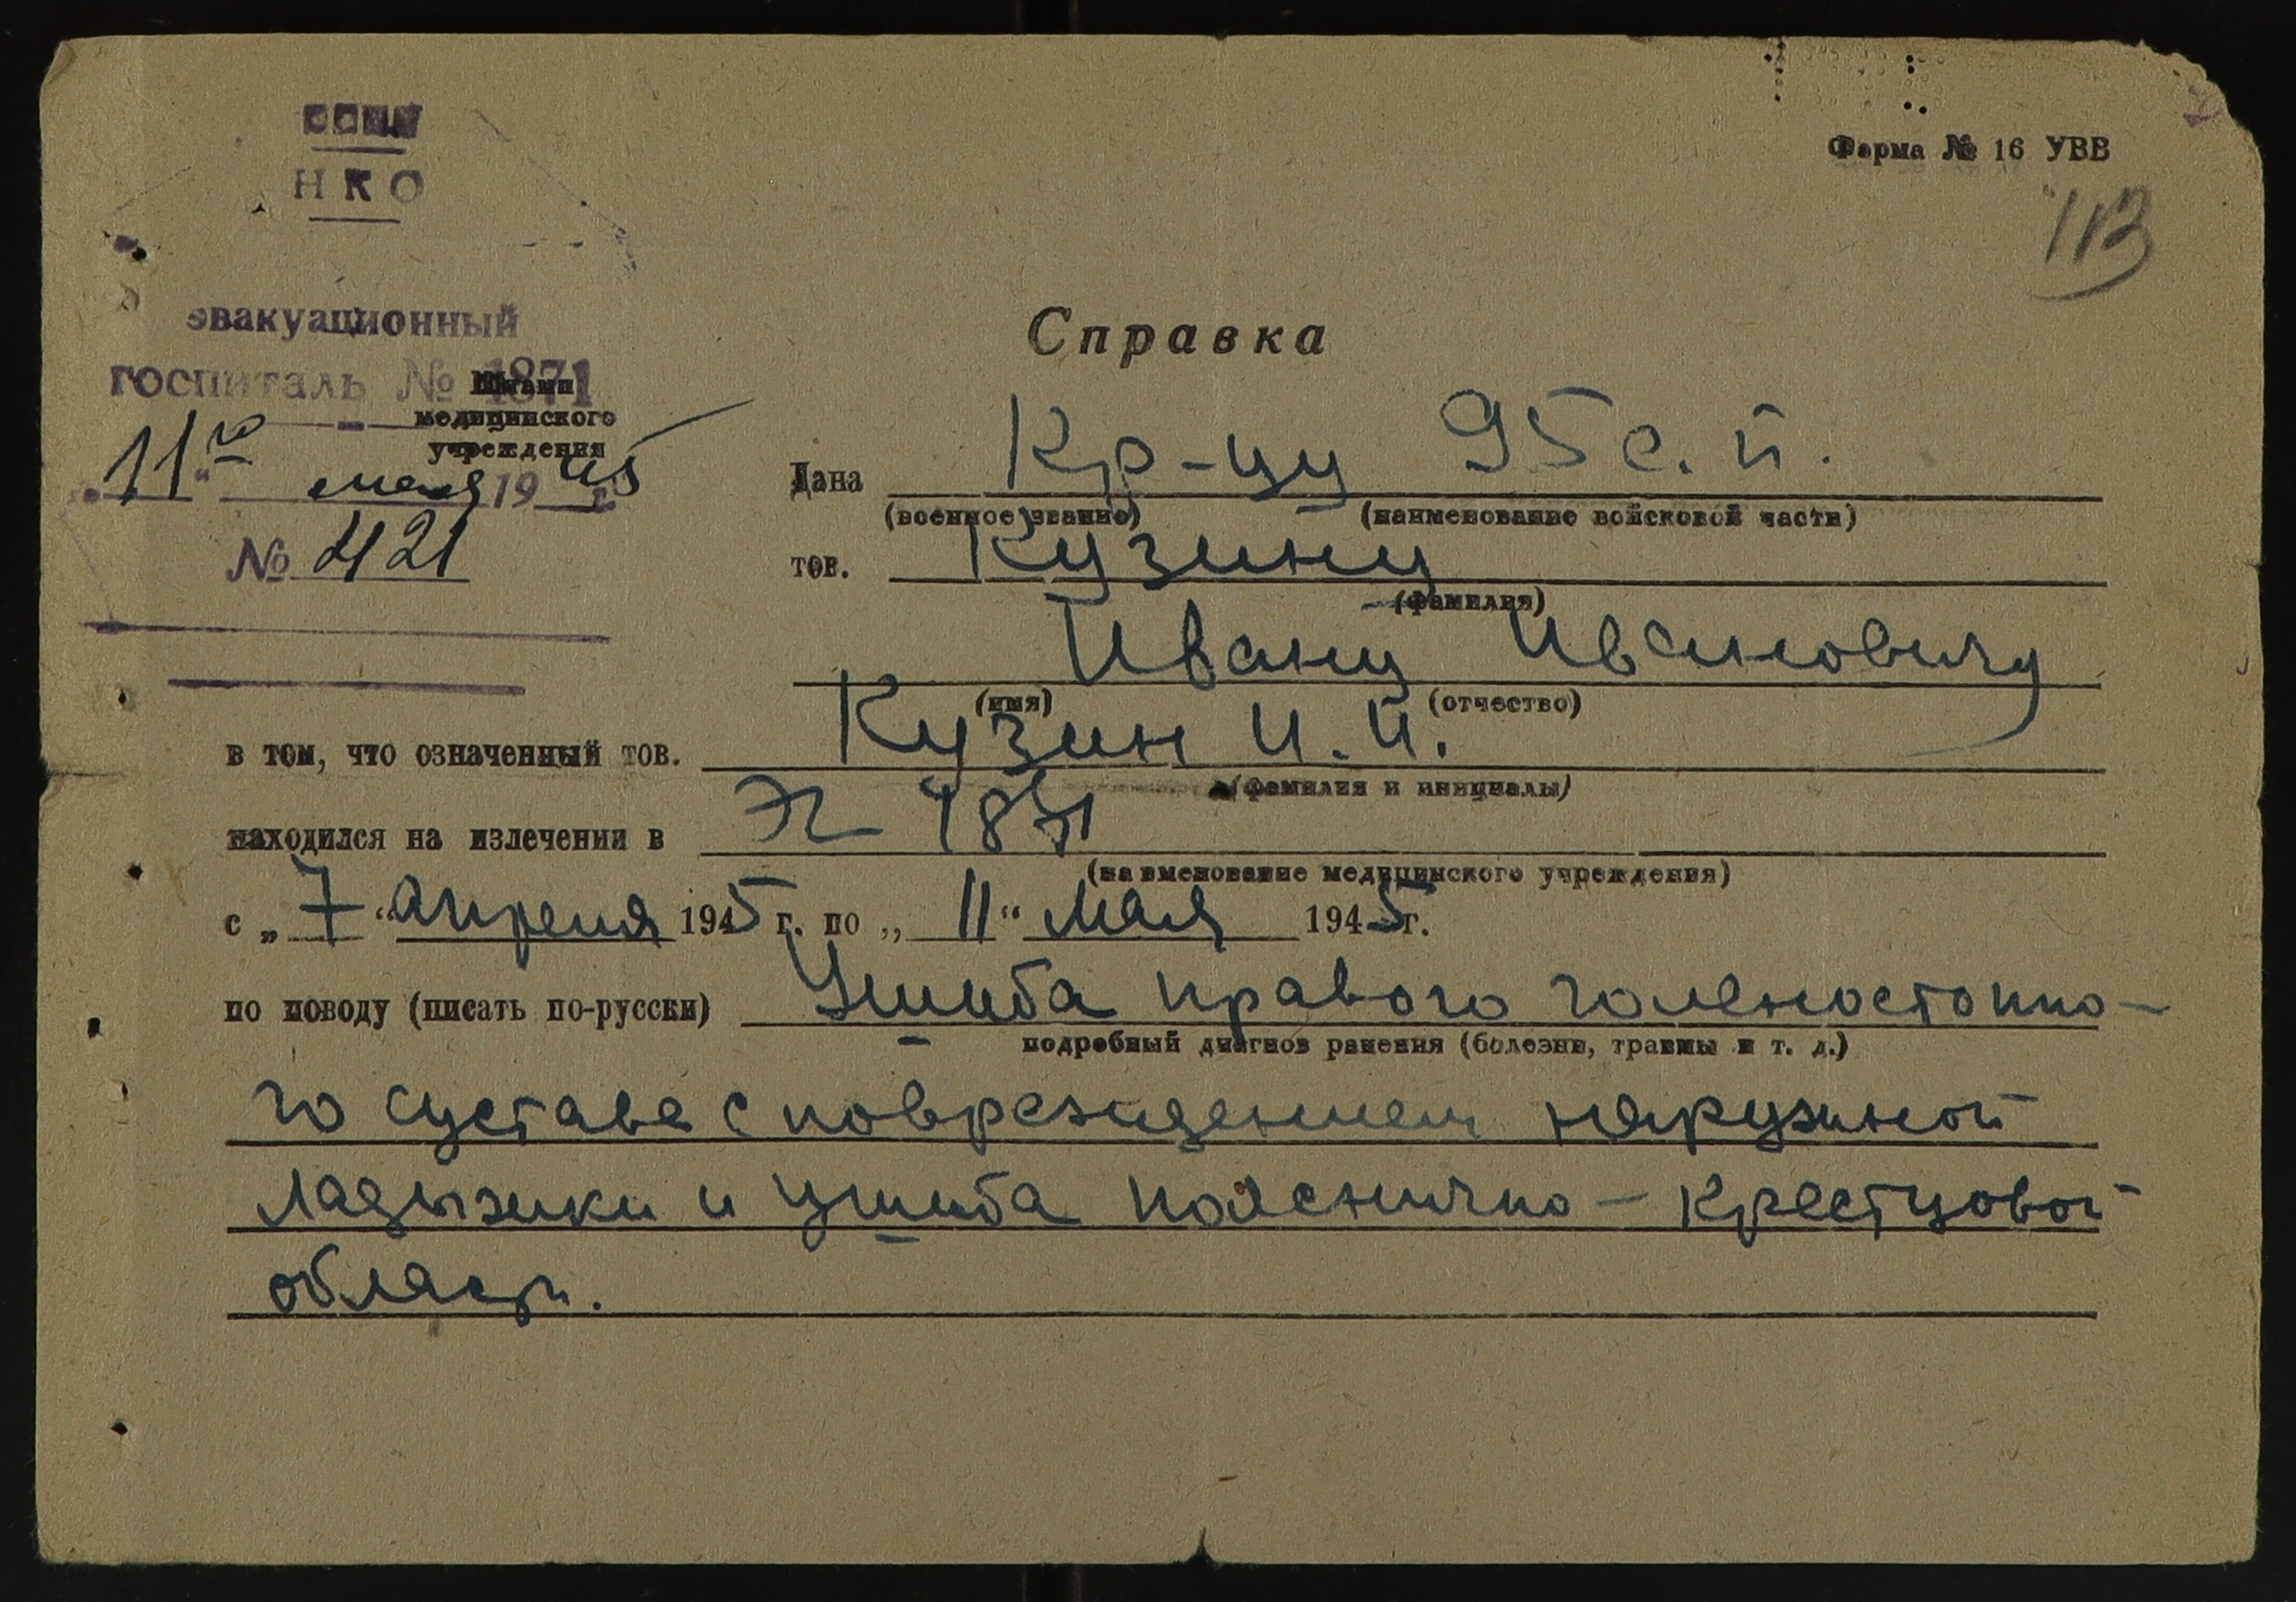 СССР
НКО
Форма № 16 УВВ
113
эвакуационный
госпиталь № 1871
Штамп
медицинского
учреждения
"11го" мая 1945 г.
№ 421
Справка
Дана Кр-цу 95 с. п.
(военное звание) (наименование войсковой части)
тов. Кузину
(фамилия)
Ивану Ивановичу
(имя) (отчество)
в том, что означенный тов. Кузин И. И.
(фамилия и инициалы)
находился на излечении в ЭГ 1871
(наименование медицинского учреждения)
с „7“ апреля 1945 г. по „11“ мая 1945 г.
по поводу (писать по-русски) Ушиба правого голеностопно-
подробный диагноз ранения (болезни, травмы и т. д.)
го сустава с повреждением наружной
ладыжки и ушиба пояснично-крестцовой
области.